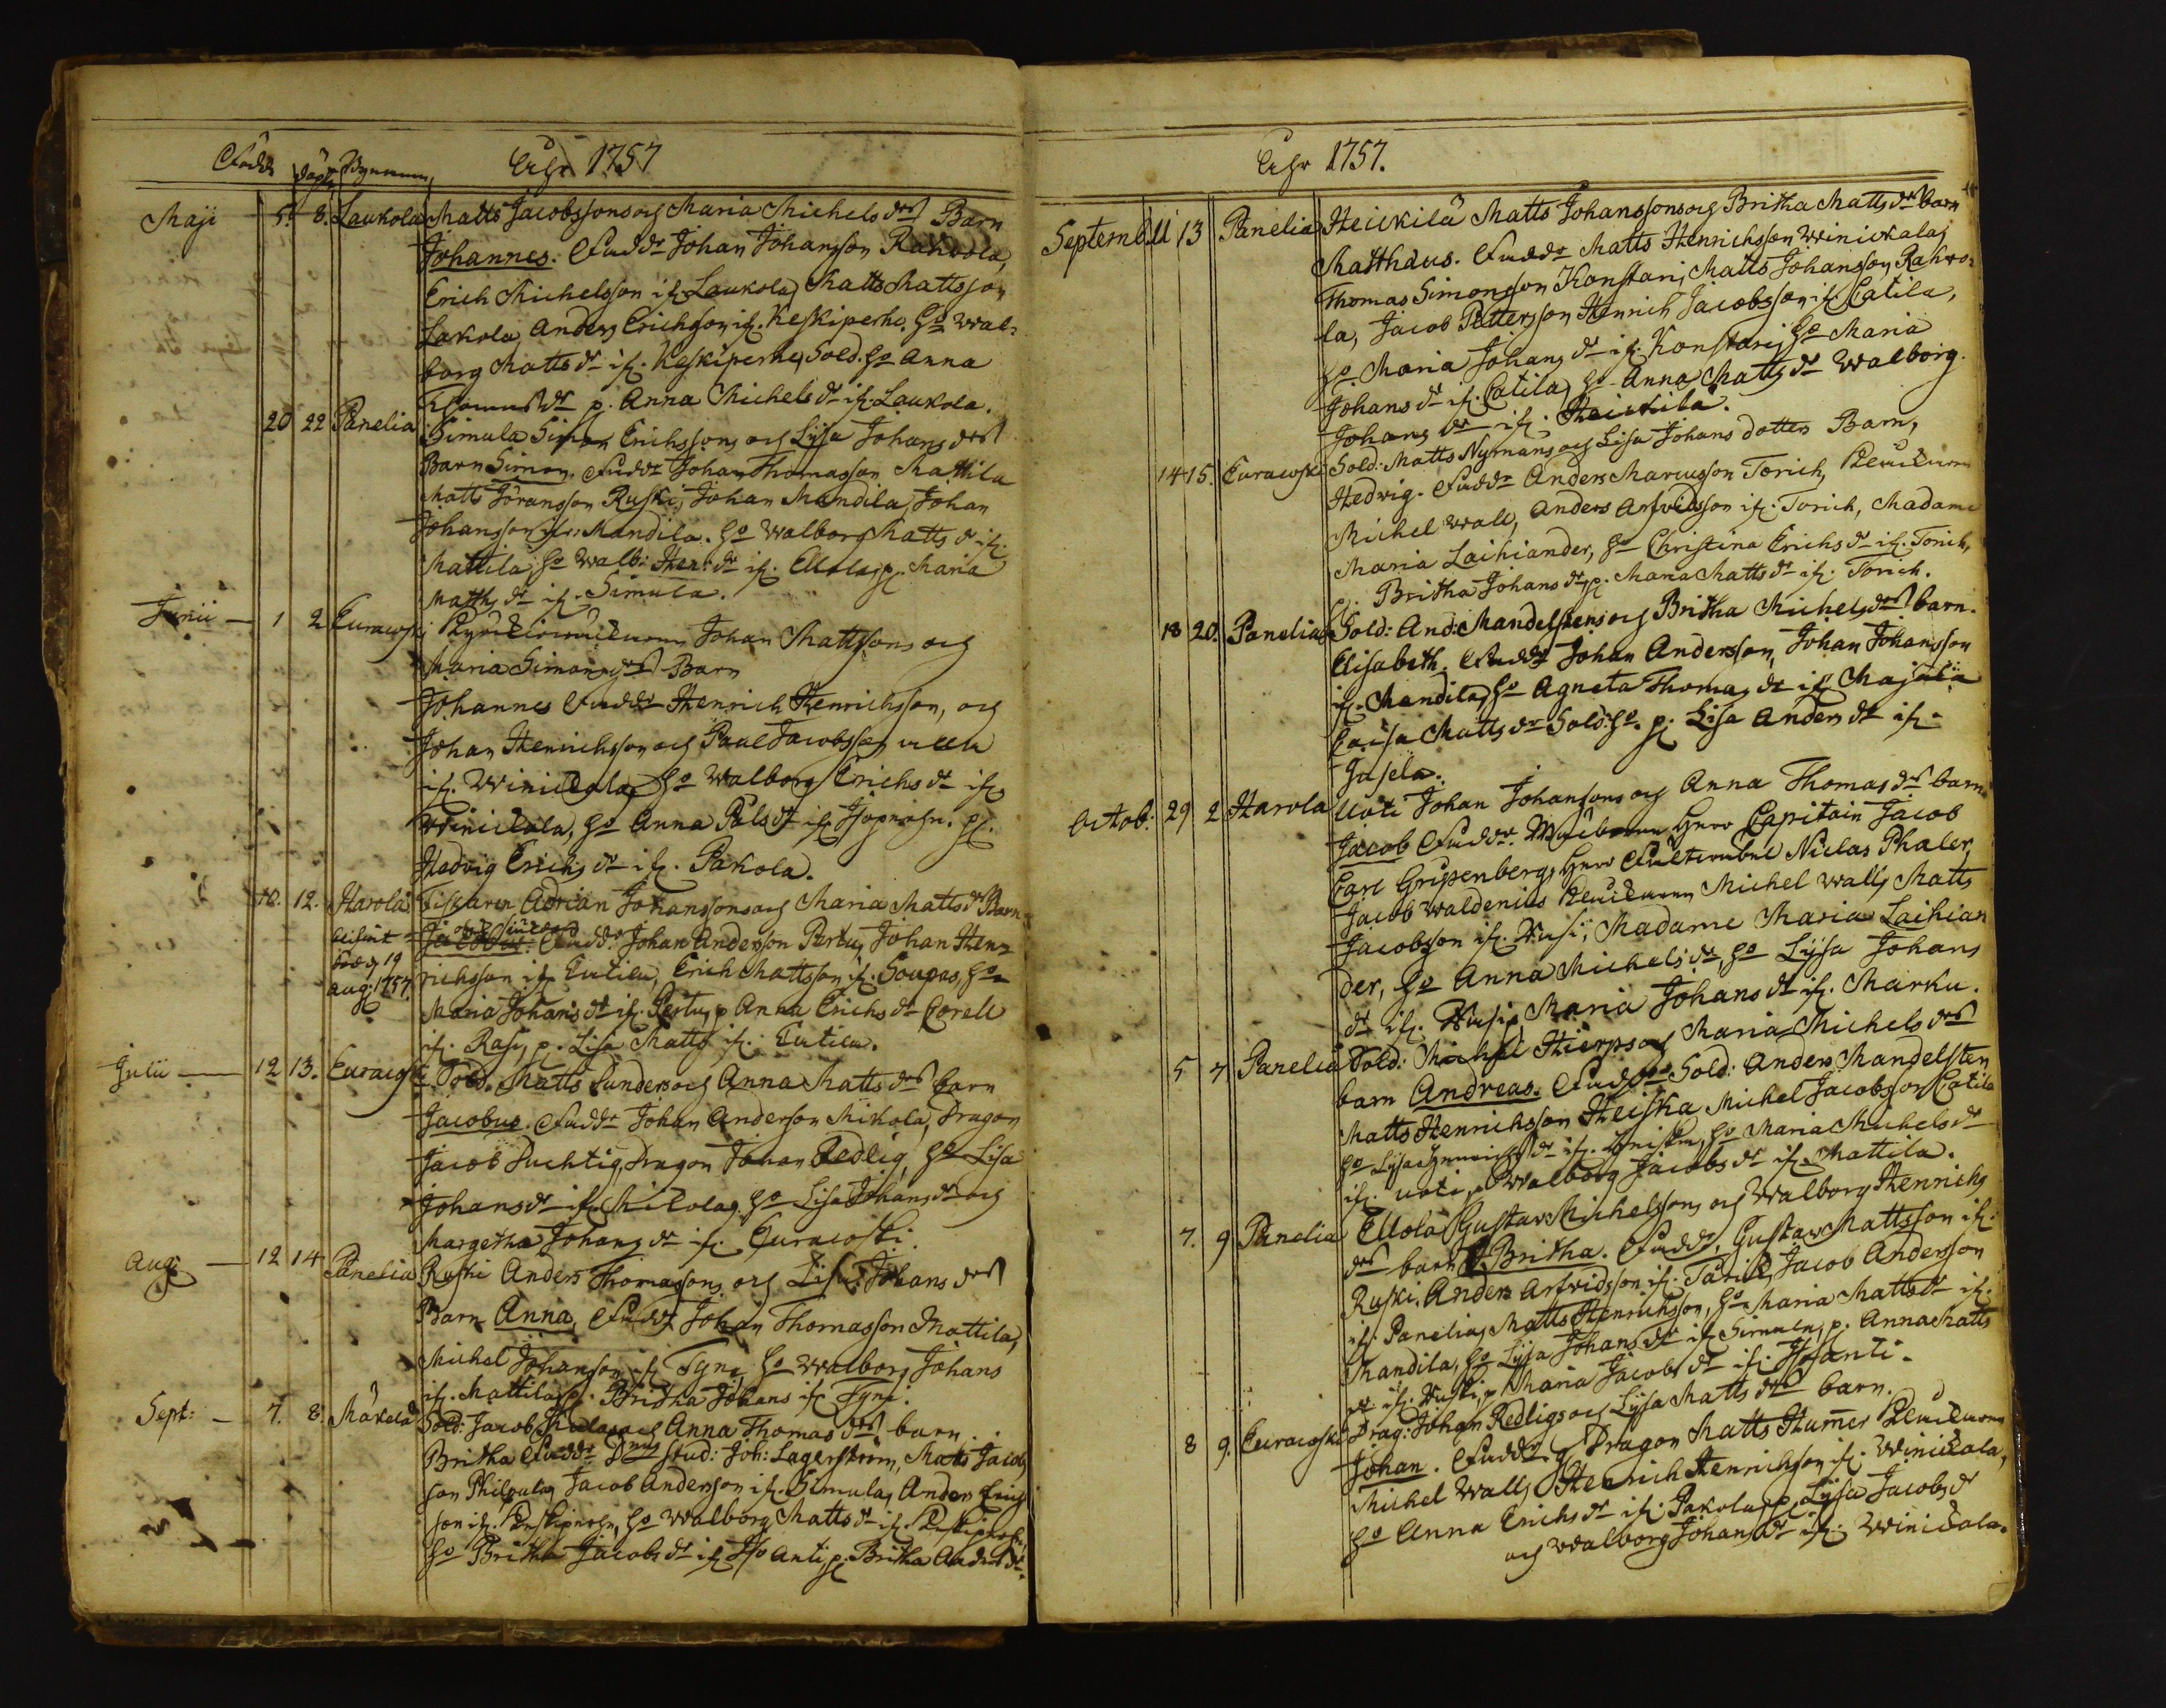 Födde döpte Byarnam, Åhr 1757
Maji 5. 8. Laukola Matts Jacobssons och Maria Michels drs Barn
Johannes. Faddr Johan Johansson Rahvola,
Erich Michelsson ifr. Laukola, Matts Mattsson
Lakola, Anders Erichson ifr. Keskiperhe. ho Wal-
borg Matts dr ifr. Keskiperhe, Sold. ho Anna
Thomas dr p. Anna Michels dr ifr. Laukola.
20 22 Panelia Simula Simon Erichssons och Lijsa Johans drs
Barn Simon. Faddr Johan Thomasson Mattila
Matts Jöransson Ruski, Johan Mandila, Johan
Johansson ifr. Mandila. ho Walborg Matts dr ifr.
Mattila, ho Walb: Hen: dr ifr. Ellola, p. Maria
Matts dr ifr. Simula.
Junii 1 2 Euraiwski Johan Mattsons och
Maria Simons drs Barn
Johannes Faddr Henrich Henrichsson, och
Johan Henrichsson och Paul Jacobsson
ifr. Winickala, ho Walborg Erichs dr ifr.
Winickala, ho Anna Påls dr ifr. p.
Hedvig Erichs dr ifr. Pakola.
10. 12. Harola Fiskaren Adrian Johanssons och Maria Matts dr Barn
Jacobus. Faddr Johan Anderson Pertu, Johan Hen-
död 19
Aug: 1757.
richsson ifr. Eutila, Erich Mattsson ifr. Soupas, ho
Maria Johans dr ifr. Pertu, p Anna Erichs dr Corell
ifr. Rasi, p. Lisa Matts ifr. Eutila.
Julii 12 13. Euraiwski Sold. Matts Sunders och Anna Matts drs barn
Jacobus. Faddr Johan Anderson Mikola, Dragon
Jacob Duchtig, Dragon Johan Redlig, ho Lisa
Johans dr ifr. Mikola, ho Lisa Johans dr och
Margetha Johans dr ifr. Euraiwski.
Aug: 12 14 Panelia Ruski Anders Thomassons och Lisa Johans drs
Barn Anna, Faddr Johan Thomasson Mattila,
Michel Johanson ifr. Tyni, ho Walborg Johans
ifr. Mattila, p. Britha Johans ifr. Tyni.
Sept: 7. 8. Mäkelä Sold: Jacob och Anna Thomas drs barn
Britha Faddr Dnus Stud: Joh: Lagerström, Matts Jacobs
son Philpula, Jacob Anderson ifr. Simula, Anders Erich
son ifr. Keskiperhe, ho Walborg Matts dr ifr. Keskiperhe,
ho Britha Jacobs dr ifr. Iso Anti, p. Britha Anders dr.
Åhr 1757.
Septemb: 11 13 Panelia Heickilä Matts Johanssons och Britha Matts dr barn
Matthæus. Faddr Matts Henrichsson Winickala,
Thomas Simonson Konstari, Matts Johansson Rahvo-
la, Jacob Pettersson Henrich Jacobsson ifr. Catila,
ho Maria Johans dr ifr. Konstari, ho Maria
Johans dr ifr. Catila, ho Anna Matts dr Walborg
Johans dr ifr. Heickilä.
14 15. Euraiwski Sold: Matts Nymans och Lisa Johans dotters Barn,
Hedvig. Faddr Anders Marcusson Torich,
Michel Wall, Anders Arfvidsson ifr. Torich, Madame
Maria Laihiander, ho Christina Erichs dr ifr. Torich,
p. Britha Johans dr, p. Maria Matts dr ifr. Torich.
18 20. Panelia Sold: And: Mandelstens och Britha Michels drs barn.
Elisabeth. Faddr Johan Andersson, Johan Johansson
ifr. Mandila, ho Agneta Thomas dr ifr. Majala
Caisa Matts dr Sold: ho. p. Lisa Anders dr ifr.
Jasela.
Octob: 29 2 Harola Uoti Johan Johansons och Anna Thomas drs barn
Jacob Faddr. Herr Capitain Jacob
Carl Gripenberg, Herr Niclas Phaler,
Jacob Waldenius Michel Wall, Matts
Jacobsson ifr. Wusi, Madame Maria Laihian
der, ho Anna Michels dr, ho Lijsa Johans
dr ifr. Wusi, Maria Johans dr ifr. Marku.
5 7 Panelia Sold: Michel Hierps och Maria Michels drs
barn Andreas. Faddr Sold: Anders Mandelsten,
Matts Henrichsson Heiska Michel Jacobsson Catila
ho Lijsa Henrichs dr ifr. Heiska, ho Maria Michels dr
ifr. Uoti, p Walborg Jacobs dr ifr. Mattila.
7. 9 Panelia Ellola Gustav Michelsons och Walborg Henrichs
drs barn Britha. Faddr, Gustav Mattsson ifr.
Ruski, Anders Arfvidsson ifr. Torick, Jacob Anderson
ifr. Panelia, Matts Henrichsson, ho Maria Matts dr ifr.
Mandila, ho Lijsa Johans dr ifr. Simula, p. Anna Matts
dr ifr. Ruski, p Maria Jacobs dr ifr. Iso Anti.
8 9. Euraiwski Drag: Johan Redligs och Lijsa Matts drs barn.
Johan. Faddr. Dragon Matts Hum̄er
Michel Wall, Henrich Henrichson ifr. Winickala,
ho Anna Erichs dr ifr. Pakola, p. Lijsa Jacobs dr
och Walborg Johans dr ifr. Winickala.